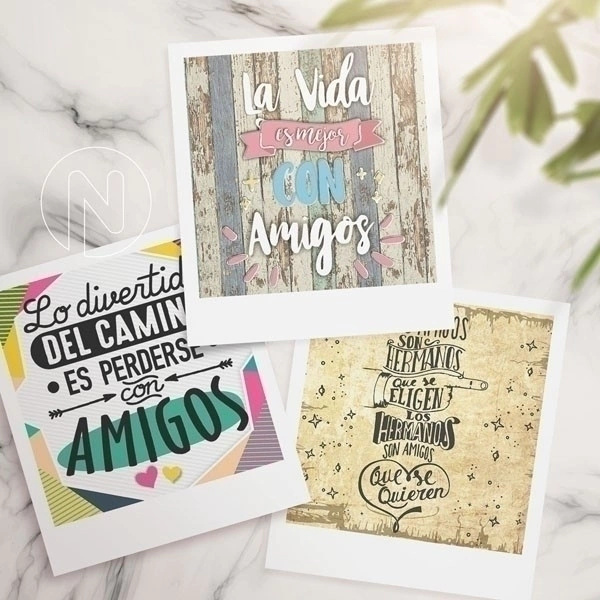 La Vida
es mejor
CON
Amigos
N
Lo divertid
DEL CAMIN
• ES PERDERSE
con
AMIGOS
MIGOS
SON
HERMANOS
Que se
ELIGEN
LOS
HERMANOS
SON AMIGOS
Que se
Quieren